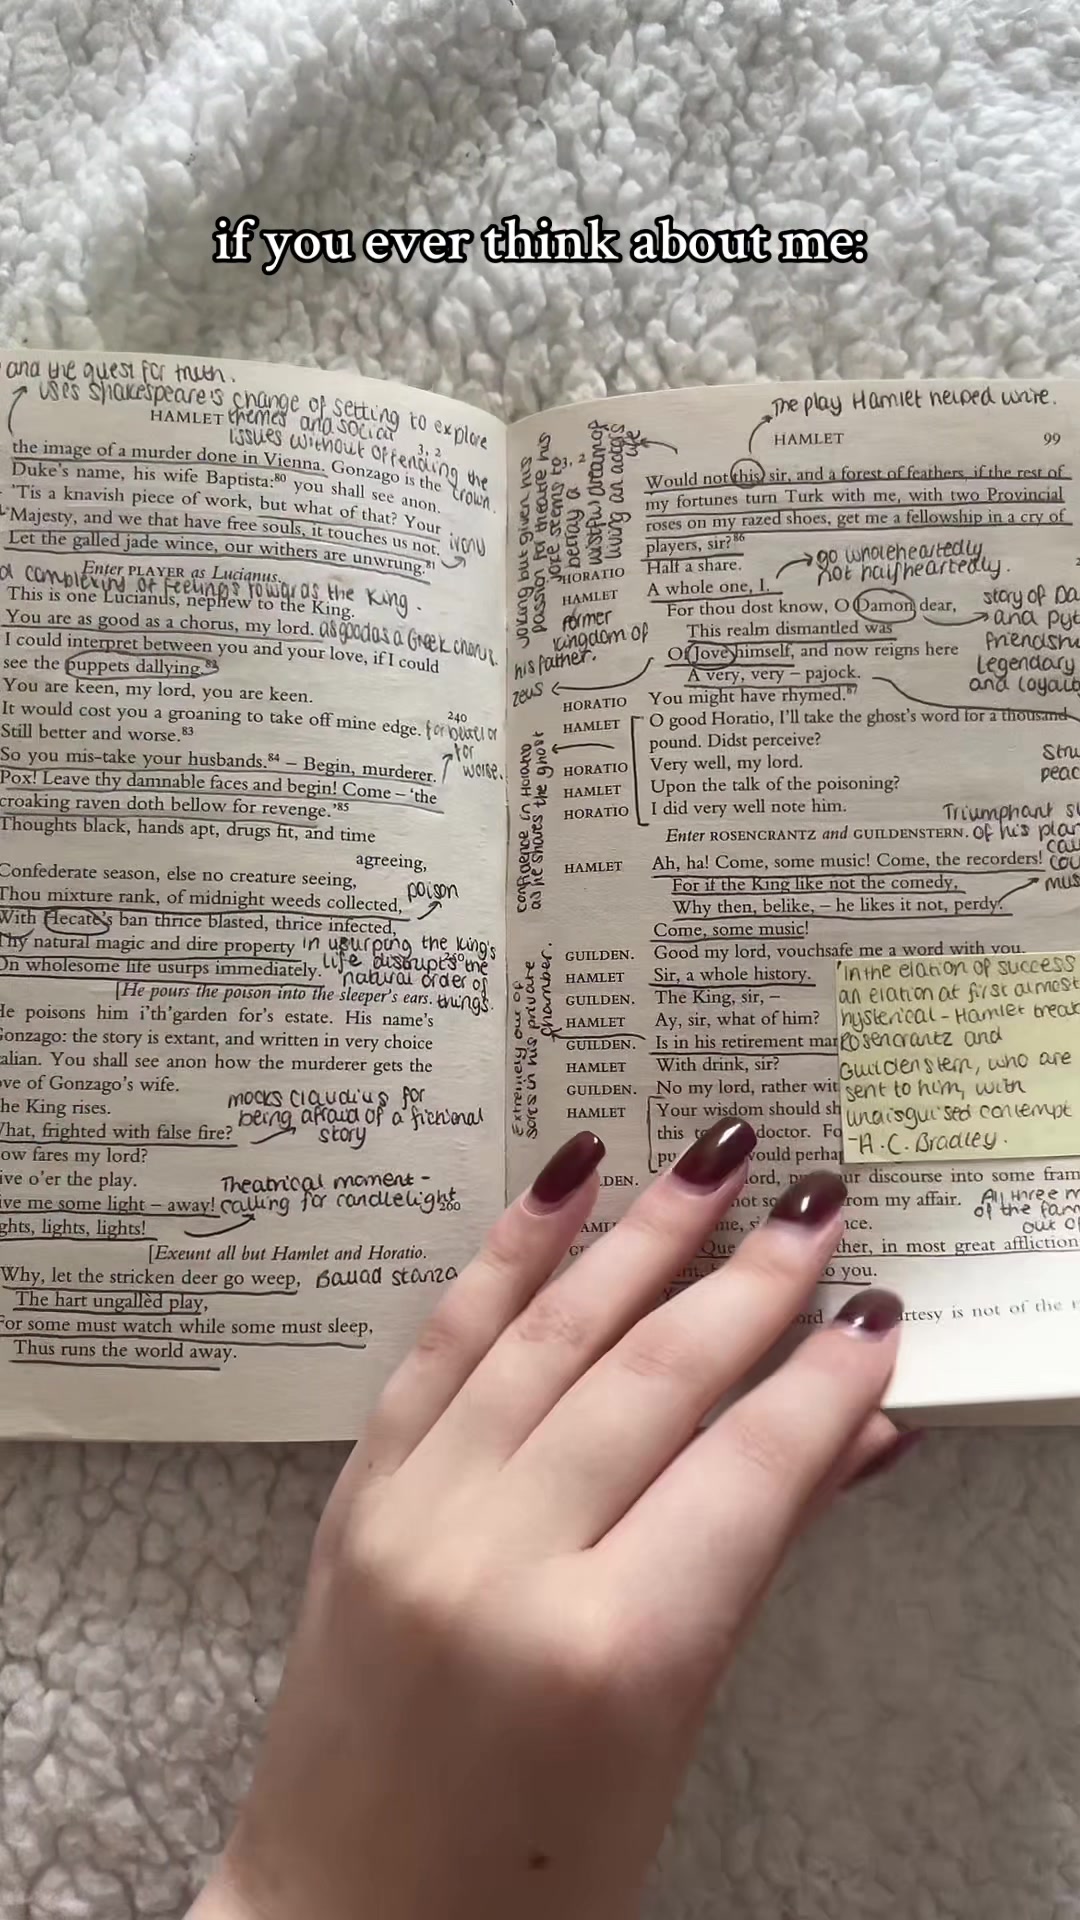 if you ever think about me:
and the quest for truth.
uses Shakespeare's change of setting to explore
themes and social
issues without offending the
crown.
HAMLET
3, 2
the image of a murder done in Vienna. Gonzago is the
Duke's name, his wife Baptista:80 you shall see anon.
'Tis a knavish piece of work, but what of that? Your
Majesty, and we that have free souls, it touches us not.
irony
Let the galled jade wince, our withers are unwrung.81
Enter PLAYER as Lucianus.
complexity of feelings towards the King.
This is one Lucianus, nephew to the King.
You are as good as a chorus, my lord.
as good as a Greek chorus.
I could interpret between you and your love, if I could
see the puppets dallying.82
You are keen, my lord, you are keen.
It would cost you a groaning to take off mine edge.
240
for better or
for
worse.
Still better and worse.83
So you mis-take your husbands.84 – Begin, murderer.
Pox! Leave thy damnable faces and begin! Come – 'the
croaking raven doth bellow for revenge.'85
Thoughts black, hands apt, drugs fit, and time
agreeing,
Confederate season, else no creature seeing,
poison
Thou mixture rank, of midnight weeds collected,
With Hecate's ban thrice blasted, thrice infected,
Thy natural magic and dire property
On wholesome life usurps immediately.
in usurping the King's
life disrupts the
natural order of
things.
[He pours the poison into the sleeper's ears.
He poisons him i'th'garden for's estate. His name's
Gonzago: the story is extant, and written in very choice
alian. You shall see anon how the murderer gets the
ve of Gonzago's wife.
he King rises.
mocks Claudius for
being afraid of a fictional
story
What, frighted with false fire?
ow fares my lord?
ive o'er the play.
Theatrical moment -
calling for candlelight
260
ive me some light – away!
ghts, lights, lights!
[Exeunt all but Hamlet and Horatio.
Why, let the stricken deer go weep,
Ballad stanza
The hart ungallèd play,
For some must watch while some must sleep,
Thus runs the world away.
The play Hamlet helped write.
3, 2
HAMLET
99
joking but given his
passion for theatre his
joke seems to
betray a
wistful dream of
living an actor's
life
Would not this sir, and a forest of feathers, if the rest of
my fortunes turn Turk with me, with two Provincial
roses on my razed shoes, get me a fellowship in a cry of
players, sir?86
HORATIO Half a share.
go wholeheartedly
not halfheartedly.
HAMLET A whole one, I.
For thou dost know, O Damon dear,
story of Da
and Pyt
friendshi
legendary
and loyalt
This realm dismantled was
former
kingdom of
his father.
Of Jove himself, and now reigns here
zeus
A very, very – pajock.
HORATIO You might have rhymed.87
HAMLET O good Horatio, I'll take the ghost's word for a thousand
pound. Didst perceive?
HORATIO Very well, my lord.
HAMLET Upon the talk of the poisoning?
HORATIO I did very well note him.
confidence in Horatio
as he shares the ghost
Stru
peac
Enter ROSENCRANTZ and GUILDENSTERN.
Triumphant su
of his plan
HAMLET Ah, ha! Come, some music! Come, the recorders!
For if the King like not the comedy,
Why then, belike, – he likes it not, perdy.
Come, some music!
GUILDEN. Good my lord, vouchsafe me a word with you.
HAMLET Sir, a whole history.
GUILDEN. The King, sir, –
HAMLET Ay, sir, what of him?
GUILDEN. Is in his retirement mar
HAMLET With drink, sir?
GUILDEN. No my lord, rather wit
HAMLET Your wisdom should sh
this to doctor. Fo
pu would perhap
Extremely out of
sorts in his private
chamber.
'In the elation of success
an elation at first almost
hysterical - Hamlet treat
Rosencrantz and
Guildenstern, who are
sent to him, with
undisguised contempt
-A.C. Bradley.
LDEN. lord, pu ur discourse into some fram
not so rom my affair.
All three m
of the fam
out of
AME me, s nce.
GU Que ther, in most great affliction
o you.
ord rtesy is not of the r